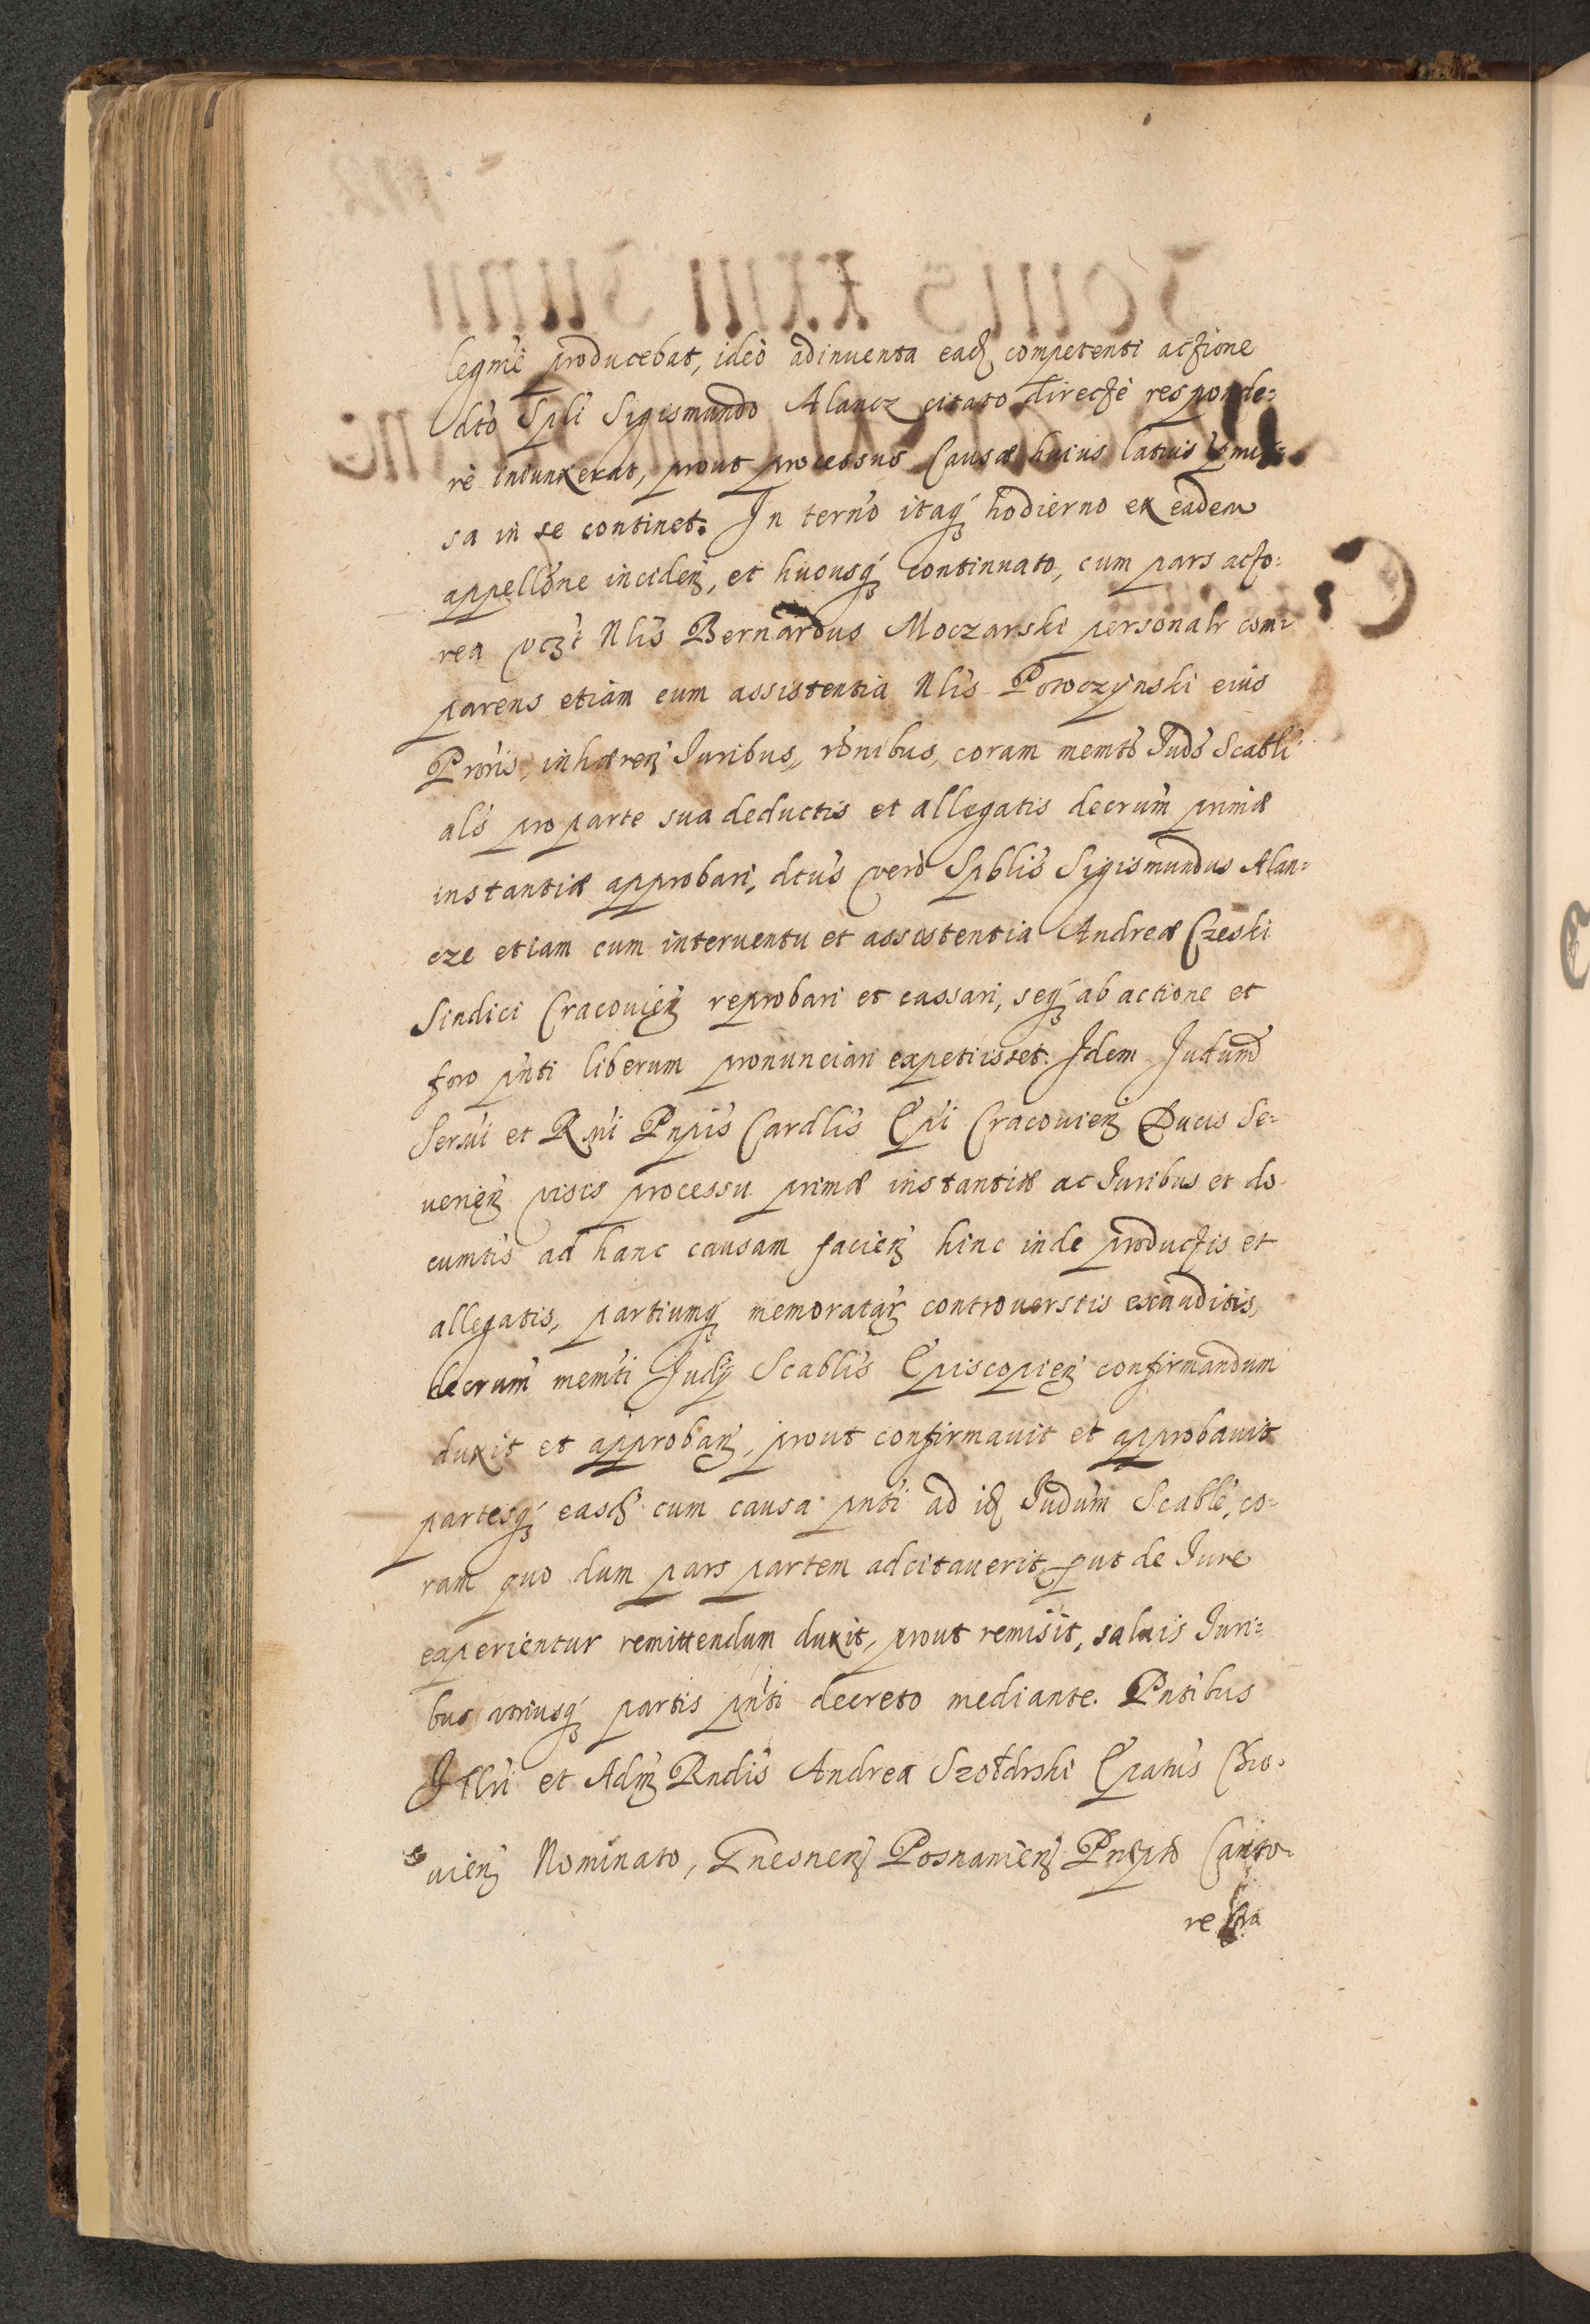 legmè producebat, ideò adinuenta eadꝫ competenti actione
dto Spli Sigismundo Alancz citato directè responde=
rè iniunxerat, prout processus Causæ huius latius
sa in se continet. In termo itaqꝫ hodierno ex eadem
appellõne incideñ, et hucusqꝫ continuato, cum pars acto=
rea vczt Nlis Bernardus Moczarski personalr com=
parens etiam cum assistentia Nlis Powczynski eius
Proris, inhæreñ Iuribus, rõnibus, coram memto Iudo Scabli
als pro parte sua deductis et allegatis decrum primæ
instantiæ approbari, dtus verò Spblis Sigismundus Alan=
cze etiam cum interuentu et assistentia Andreæ Czeski
Sindici Cracouieñ reprobari et cassari, seqꝫ ab actione et
foro pnti liberum pronunciari expetiisset. Idem Iudum
Sermi et Rmi Pnpis Cardlis Epi Cracouieñ Ducis Se=
uerieñ visis processu primæ instantiæ ac Iuribus et do
cumtis ad hanc causam facieñ hinc inde productis et
allegatis, partiumqꝫ memoratarꝫ controuersiis exauditis,
decrum memti Iudij Scablis Episcopieñ confirmandum
duxit et approbañ, prout confirmauit et approbauit
partesqꝫ easdꝫ cum causa pnti ad idꝫ Iudum Scable, co=
ram quo dum pars partem adcitauerit, put de Iure
experientur remittendum duxit, prout remisit, saluis Iuri=
bus utriusqꝫ partis pnti decreto mediante. Pntibus
Illri et Admꝫ Rndis Andrea Szołdrski Epatus Chio=
uieñ Nominato, Gnesneñ Posnanieñ Prepto Canto=
re